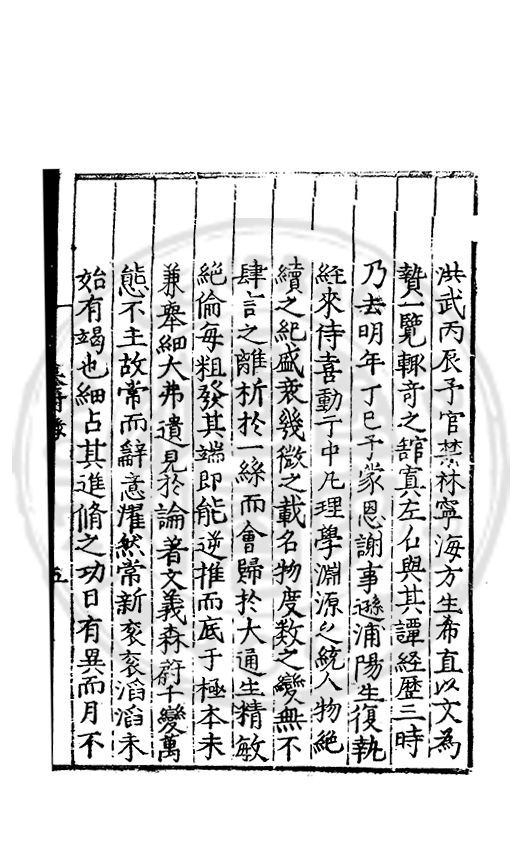 洪武丙辰予官禁林寧海方生希直以文為
贄一覽輒奇之舘寘左右與其譚經歷三時
乃去明年丁巳予蒙恩謝事還浦陽生復執
經來侍喜動于中凡理學淵源之統人物絕
續之紀盛衰幾微之載名物度數之變無不
肆言之離析於一絲而會歸於大通生精敏
絕倫每粗發其端即能逆推而底于極本末
兼舉細大弗遺見於論著文義森蔚千變萬
態不主故常而辭意濯然常新衮衮滔滔未
始有竭也細占其進脩之功日有異而月不
五